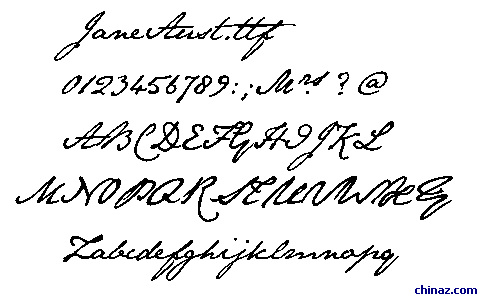 JaneAust.ttf
0123456789:;Mrs?@
ABCDEFGHIJKL
MNOPQRSTUVWXY
Zabcdefghijklmnopq
chinaz.com